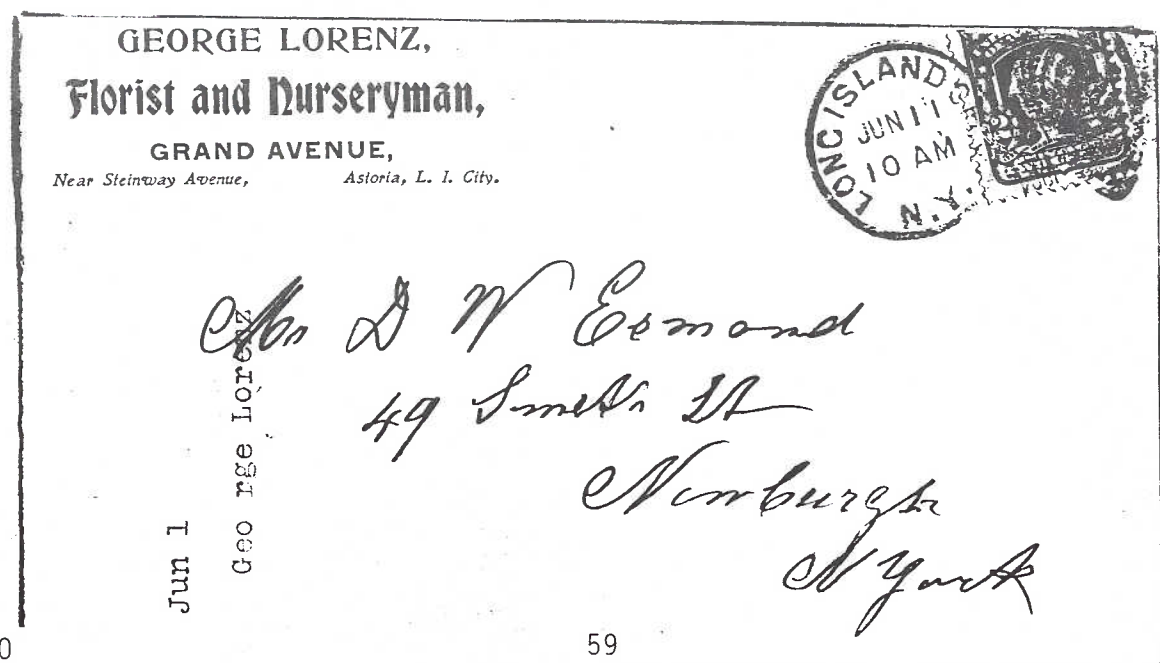 GEORGE LORENZ,
Florist and Nurseryman,
GRAND AVENUE,
Near Steinway Avenue, Astoria, L. I. City.
LONG ISLAND
JUN 11
10 AM
N.Y.
Mr D W Esmond
49 Smith St
Newburgh
N York
Jun 1
Geo rge Lorenz
0
59